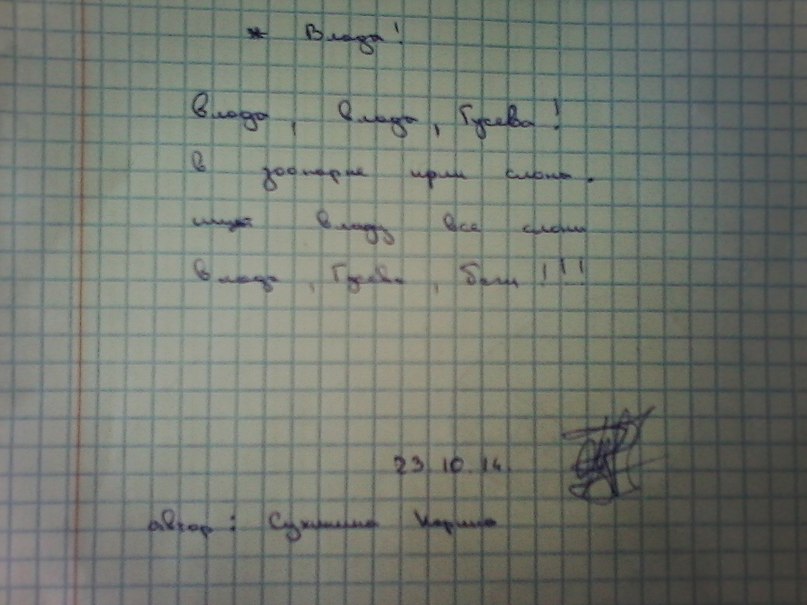 * Влада!
Влада, Влада, Гусева!
в зоопарке слоны.
ищут Владу все слоны
Влада, Гусева, Беги!!!
23.10.14.
автор: Сухинина Карина